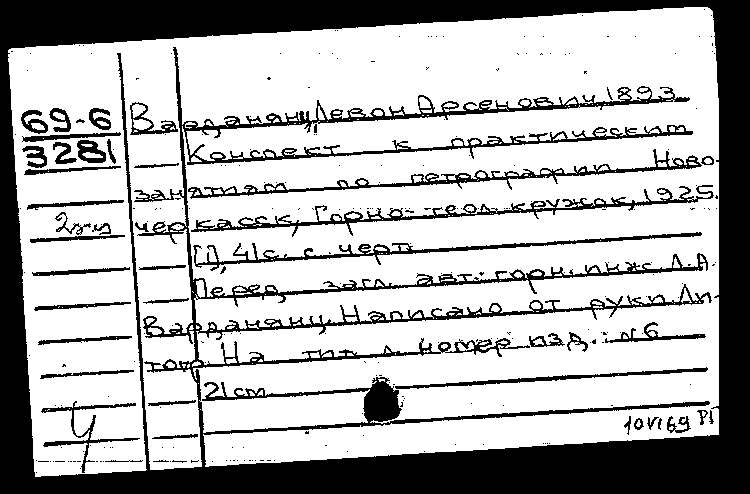 69-6
3281
2экз
Варданянц, Левон Арсенович, 1893
Конспект к практическим
занятиям по петрографии. Ново-
черкасск, Горно-геол. кружок, 1925.
[1], 41 с. с черт.
Перед загл. авт.: горн. инж. Л.А.
Варданянц. Написано от руки. Ли-
тогр. На тит. л. номер изд.: №6
21 см
Ч
10 VI 69